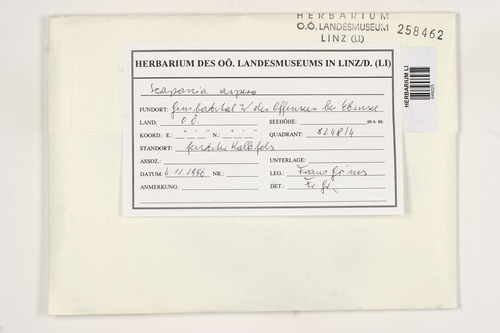 HERBARIUM
O.Ö. LANDESMUSEUM
LINZ (LI)
258462
HERBARIUM LI
HERBARIUM DES OÖ. LANDESMUSEUMS IN LINZ/D. (LI)
Scapania aspera
FUNDORT: Gimbachtal W des Offensees bei Ebensee
LAND: OÖ.
SEEHÖHE: m s. m.
KOORD.: E.: ° ' " N.: ° ' "
QUADRANT: 8248/4
STANDORT: feuchter Kalkfels
ASSOZ.:
UNTERLAGE:
DATUM: 4.11.1996 NR.:
LEG.: Franz Grims
ANMERKUNG:
DET.: Fr. Gr.